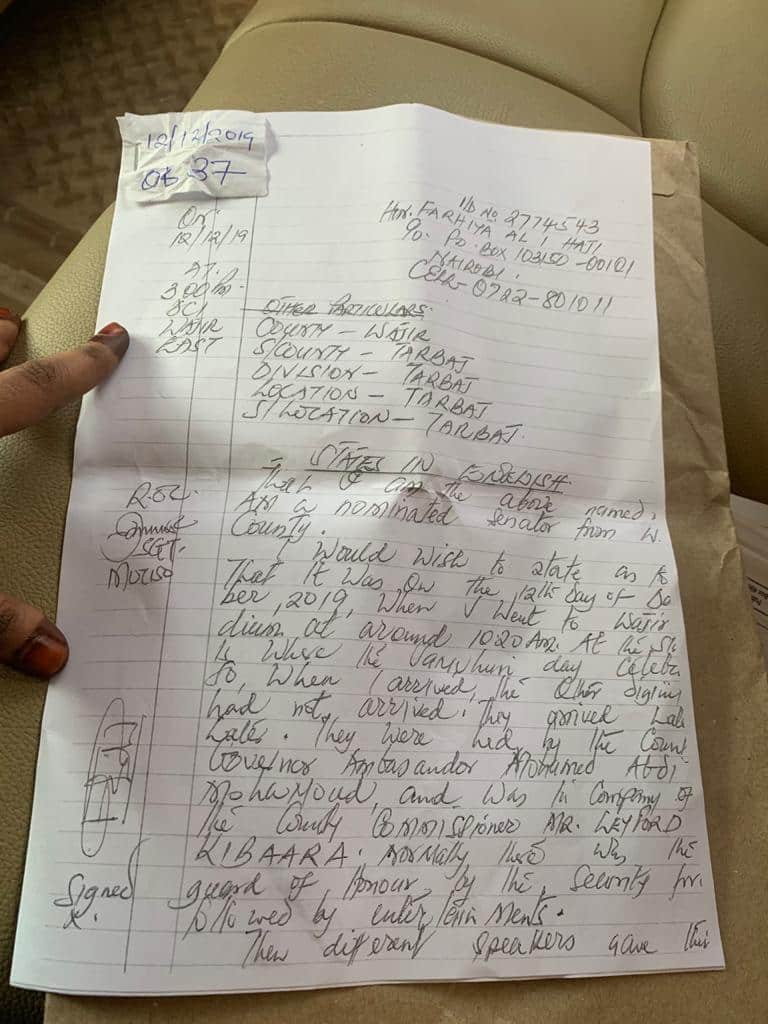 12/12/2019
OB 37
On:
12/12/19
AT.
300 Pm.
DCI
WAJIR
EAST
I/D No 27774543
Hon. FARHIYA ALI HAJI
P.O. BOX 103150-00101
NAIROBI.
CELL- 0722-801011
OTHER PARTICULARS.
COUNTY - WAJIR
S/COUNTY - TARBAJ
DIVISION - TARBAJ
LOCATION - TARBAJ
S/LOCATION - TARBAJ.
STATES IN ENGLISH.
That I am the above named.
Am a nominated Senator from W.
County.
I would wish to state as fo
That it was on the 12th day of De
ber, 2019, when I went to Wajir
dium at around 1020 Am. At the St
is where the Jamuhuri day celebr
So, when I arrived, the other digni
had not arrived. They arrived
later. They were led by the Coun
Governor Ambasandor Mohamed Abdi
Mohamoud, and was in company of
the County Commissioner MR. LEYFORD
KIBAARA. Normally there was the
guard of Honour by the security for
followed by entertainments.
Then different speakers gave thei
R.O.C.
SGT.
MUTISO
Signed
x.